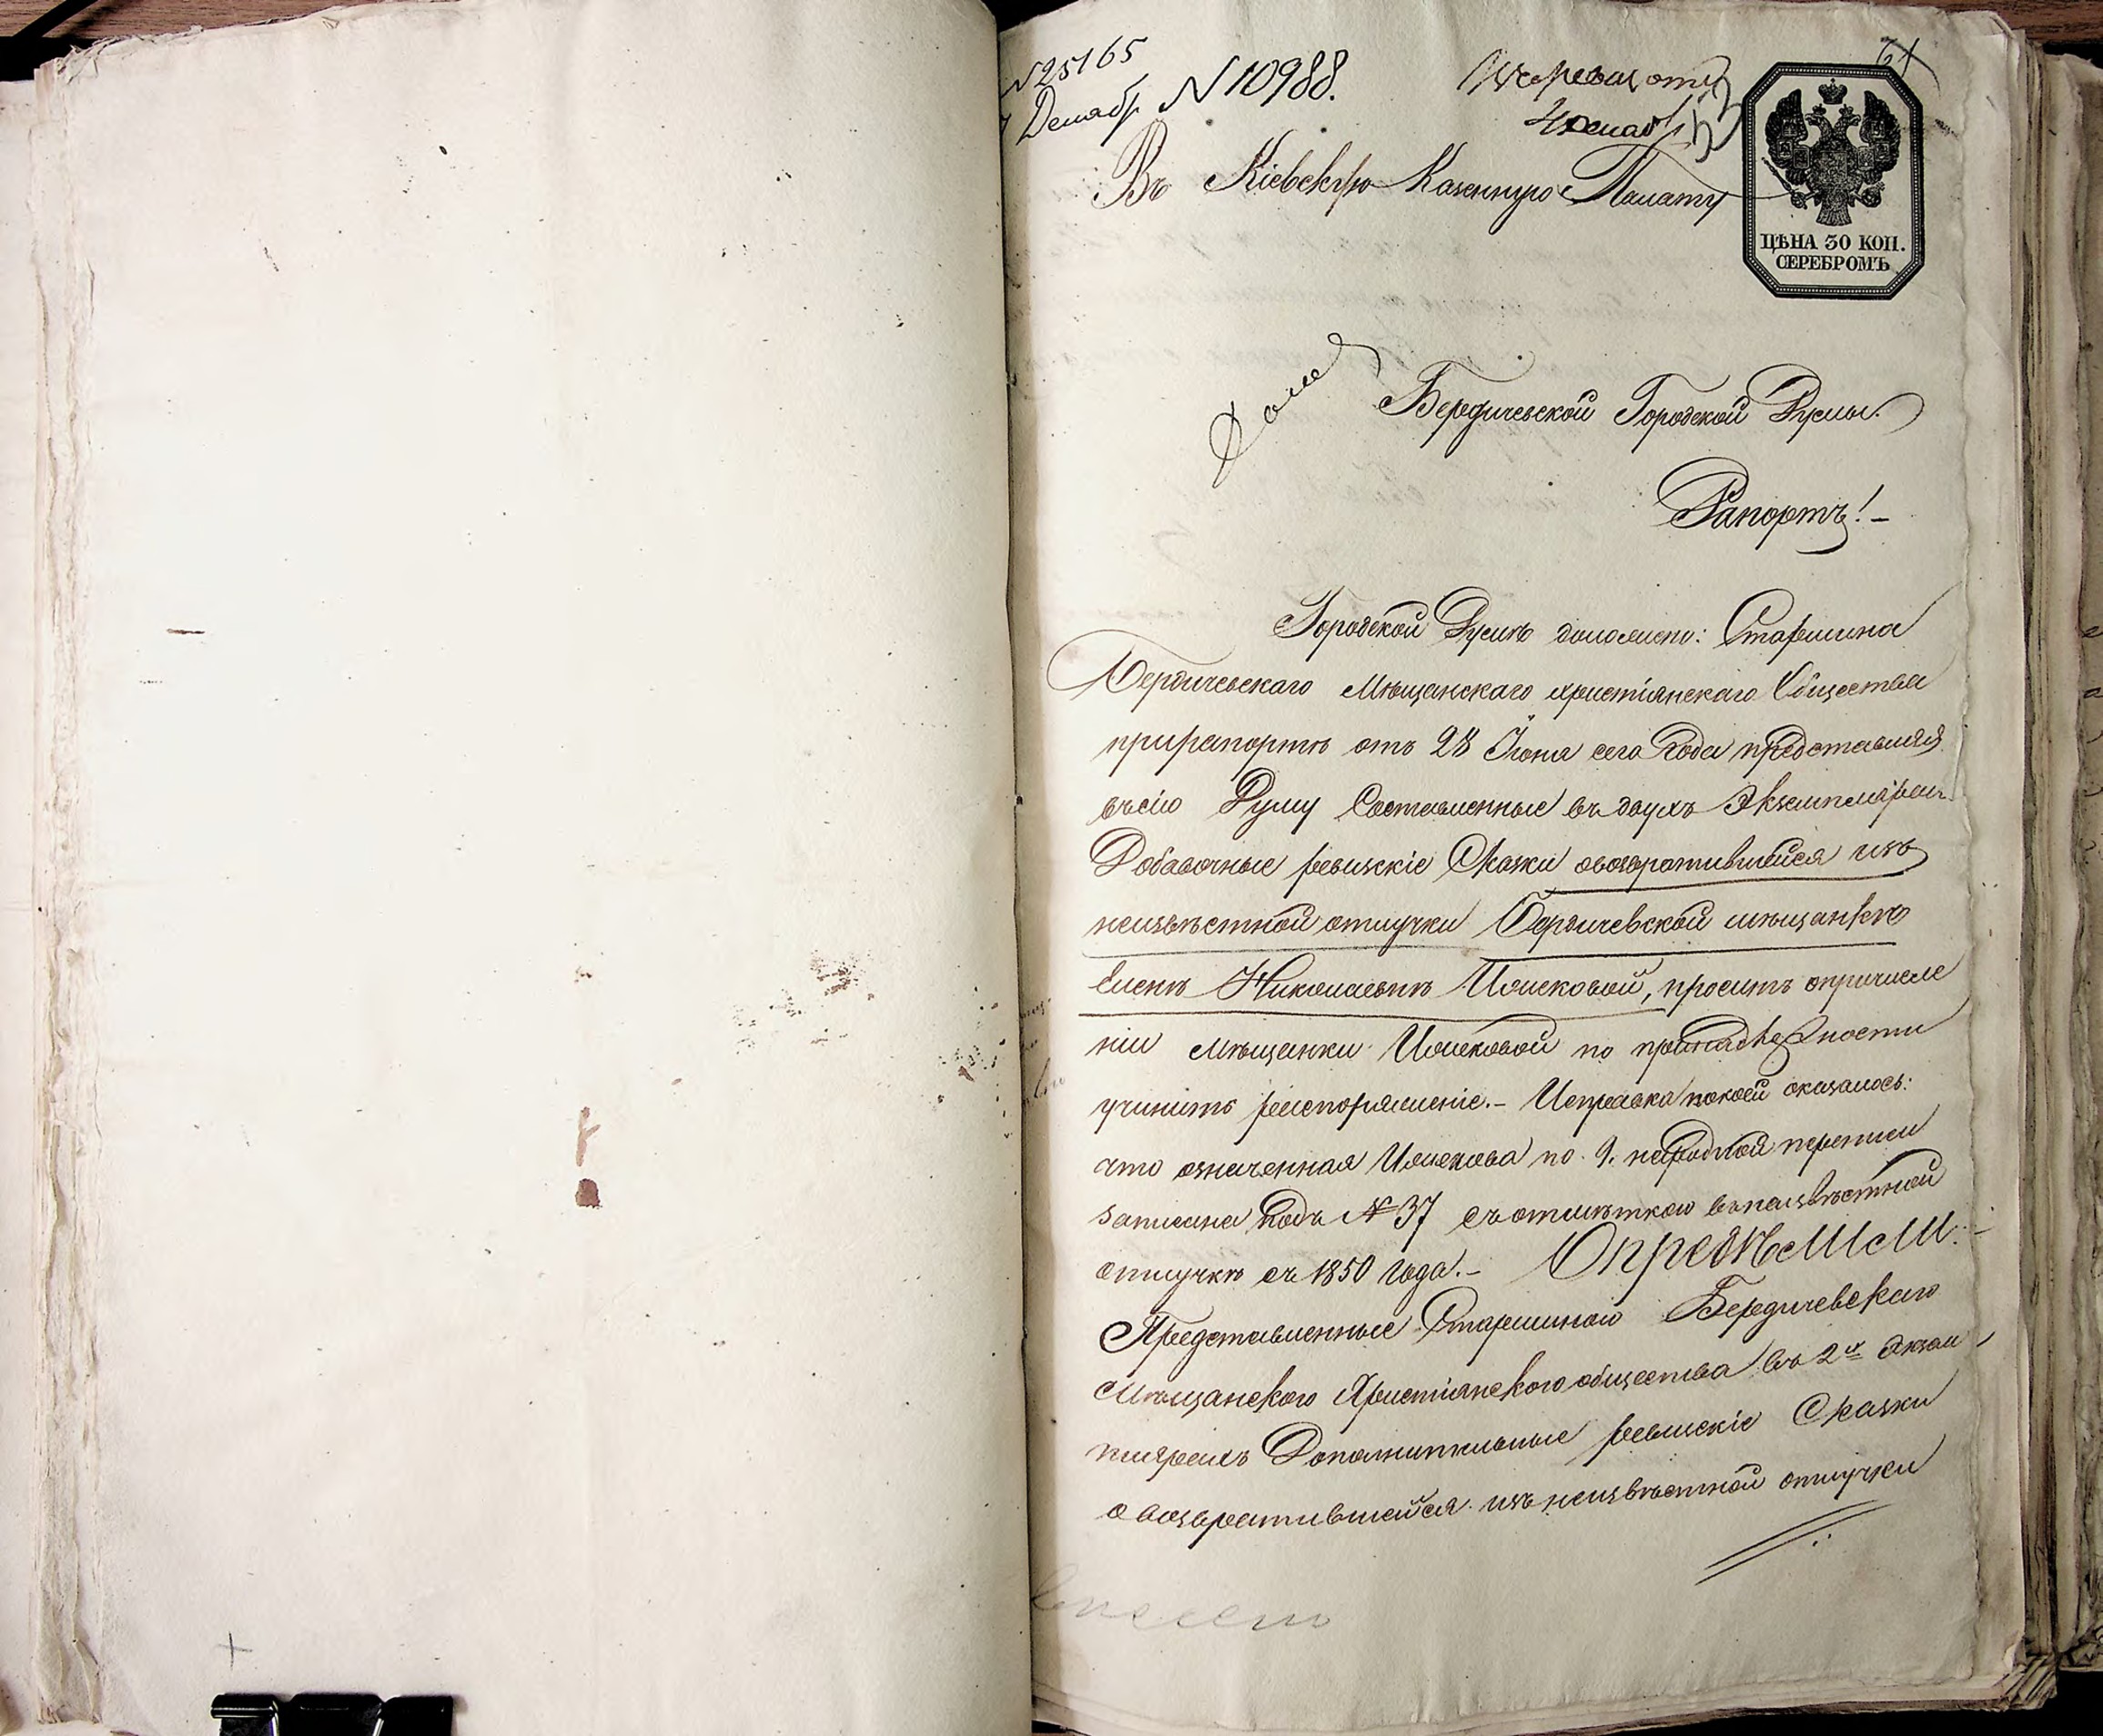 N 25165
Декабр. N 10988.
4 Декаб
Въ Кіевскую Казенную Палату
ЦѢНА 30 КОП.
СЕРЕБРОМЪ
Бердичевской Городской Думы.
Рапортъ! –
Городской Думѣ доложено: Старшина
Бердичевскаго Мѣщанскаго христіянскаго Общества
прирапортѣ отъ 28 Іюня сего Года представляя
въсію Думу Составленные въ двухъ Экземплярах
Добавочные ревизскіе Сказки овозвратившейся изъ
неизвѣстной отлучки Бердичевской мѣщанкѣ
Еленѣ Николаевнѣ, проситъ опричисле
ніи Мѣщанки по принадлежности
учинить распоряженіе. – Исправка покоей оказалось:
что означенная по 9. народной переписи
записана подъ № 37 съотмѣткою внеизвѣстной
отлучкѣ съ 1850 Года. – Опредѣлили: –
Представленные Старшиною Бердичевскаго
Мѣщанского Христіянского общества въ 2х Экзем
плярахъ Дополнительные ревизскіе Сказки
о возвратившейся изъ неизвѣстной отлучки